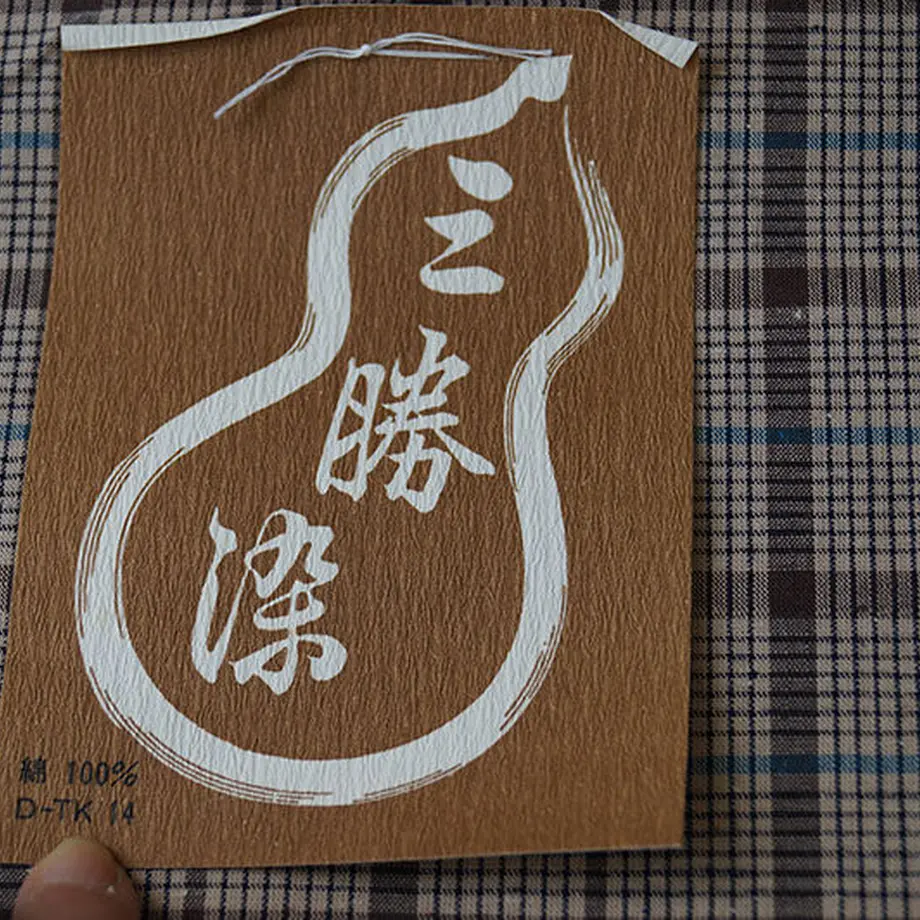 三勝染
綿 100%
D-TK 14